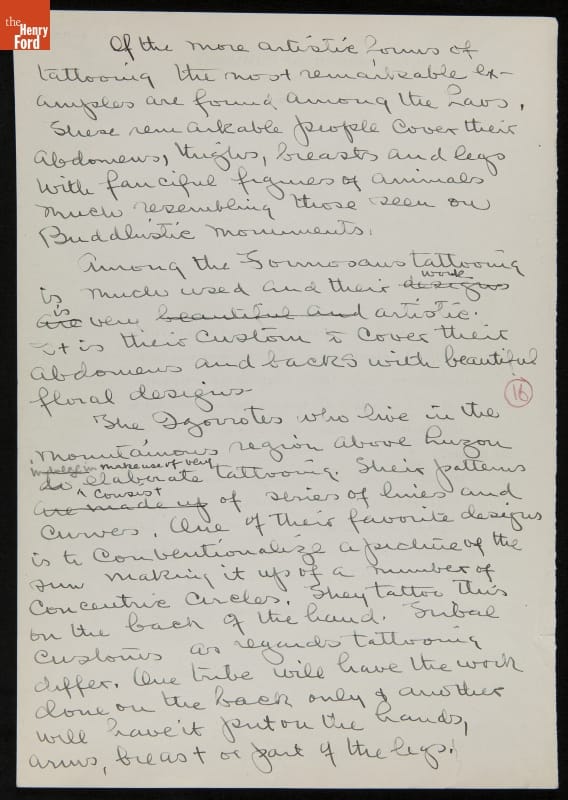 the
Henry
Ford
Of the more artistic forms of
tattooing the most remarkable ex-
amples are found among the Laos.
These remarkable people cover their
abdomens, thighs, breasts and legs
with fanciful figures of animals
much resembling those seen on
Buddhistic monuments.
Among the Formosans tattooing
is much used and their designs work
are is very beautiful and artistic.
It is their custom to cover their
abdomens and backs with beautiful
floral designs
16
The Igorrotes who live in the
mountainous region above Luzon
do indulge in make use of very elaborate tattooing. Their patterns
are made up consist of series of lines and
curves. One of their favorite designs
is to conventionalize a picture of the
sun making it up of a number of
concentric circles. They tattoo this
on the back of the hand. Tribal
customs as regards tattooing
differ. One tribe will have the work
done on the back only & another
will have it put on the hands,
arms, breast or part of the legs.